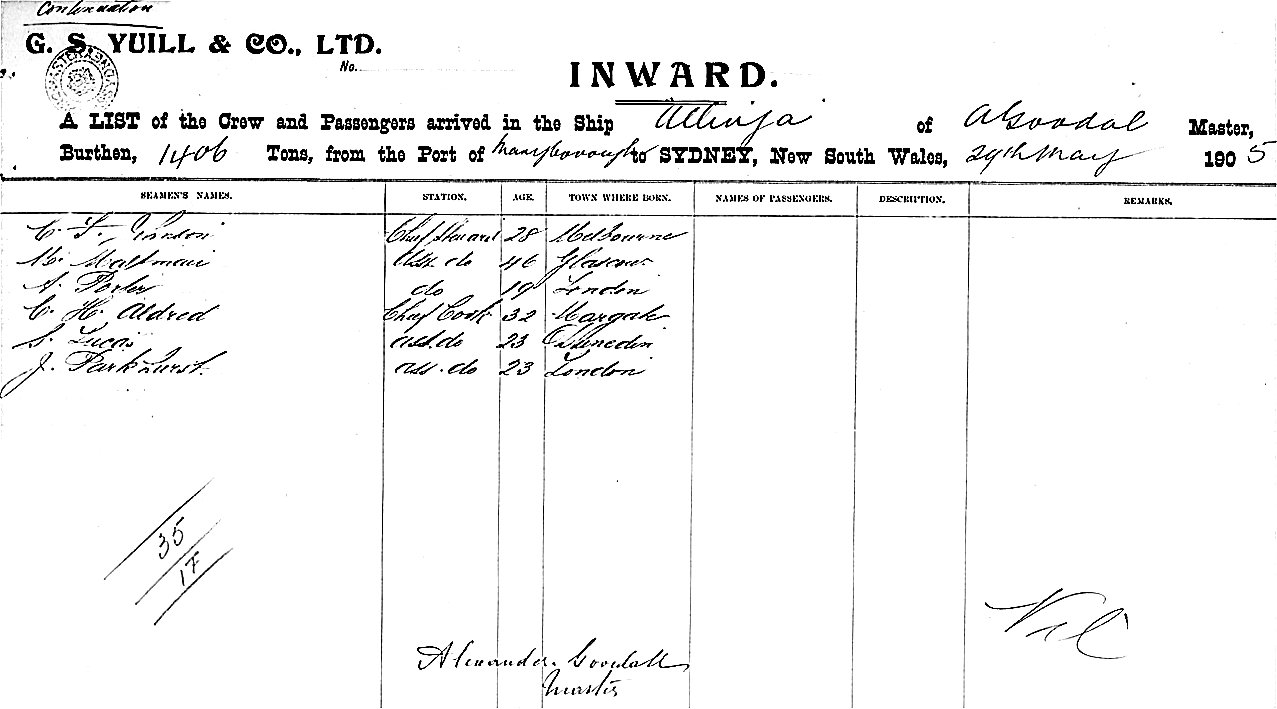 Continuation
G. S. YUILL & CO., LTD.
No.
INWARD.
A LIST of the Crew and Passengers arrived in the Ship Allinga of A Goodal Master,
Burthen, 1406 Tons, from the Port of Maryborough to SYDNEY, New South Wales, 29th May 1905
SEAMEN'S NAMES. STATION. AGE. TOWN WHERE BORN. NAMES OF PASSENGERS. DESCRIPTION. REMARKS.
C. F. Chief Steward 28 Melbourne
Ass do 46 Glascow
A. Porter do 19 London
C. H. Aldred Chief Cook 32 Margate
S. Lucas asst. do 23 Dunedin
J. Parkhurst. ass. do 23 London
35
17
Nil
Alexander Goodall
Master